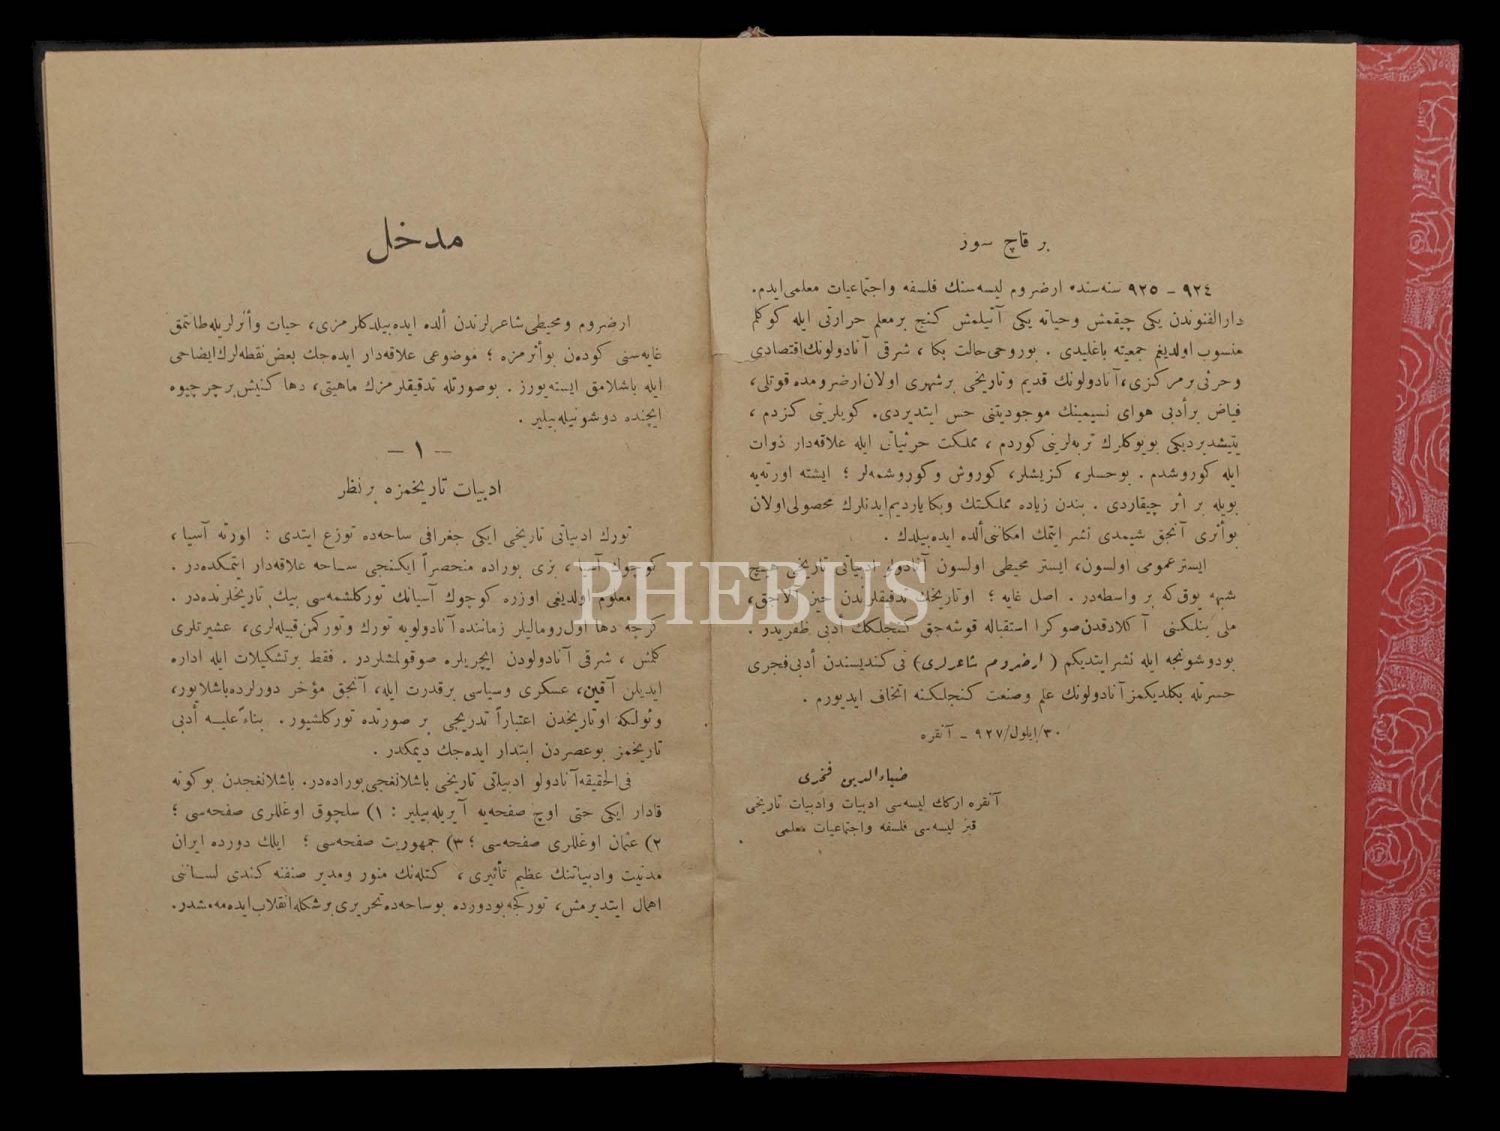 بر قاچ سوز
٩٢٤ – ٩٢٥ سنه‌سنده ارضروم ليسه‌سنك فلسفه واجتماعيات معلمی ايدم.
دارالفنوندن يكی چيقمش وحياته يكی آتيلمش كنج برمعلم حرارتی ايله كوكلم
منسوب اولديغم جمعيته باغليدی . بوروحی حالت بكا ، شرقی آنادولونك اقتصادی
وحرثی برمركزی، آنادولونك قديم وتاريخی برشهری اولان ارضرومده قوتلی،
فياض برأدبی هوای نسيمينك موجوديتنی حس ايتديردی. كويلرينی كزدم ،
يتيشديرديكی بويوكلرك تربه‌لرينی كوردم ، مملكت حرثياتی ايله علاقه‌دار ذوات
ايله كوروشدم . بوحسلر، كزيشلر، كوروش وكوروشمه‌لر ؛ ايشته اورته‌يه
بويله بر اثر چيقاردی . بندن زياده مملكتك وبكا يارديم ايدنلرك محصولی اولان
بوأثری آنجق شيمدی نشر ايتمك امكاننی ألده ايده‌بيلدك .
ايستر عمومی اولسون، ايستر محيطی اولسون آنادولو ادبياتی تاريخی هيچ
شبهه يوق كه بر واسطه‌در . اصل غايه ؛ اوتاريخك تدقيقلرندن حيز آلاجق،
ملی بنلكنی آكلادقدن صوكرا استقباله قوشه‌جق كنجلكك أدبی ظفريدر .
بودوشونجه ايله نشرايتديكم ( ارضروم شاعرلری) نی كنديسندن أدبی فجری
حسرتله بكلديكمز آنادولونك علم وصنعت كنجلكنه اتحاف ايديورم .
٣٠/ايلول/٩٢٧ – آنقره
ضياءالدين فخری
آنقره اركك ليسه‌سی ادبيات وادبيات تاريخی
قيز ليسه‌سی فلسفه واجتماعيات معلمی
مدخل
ارضروم ومحيطی شاعرلرندن ألده ايده‌بيلدكلرمزی، حيات وأثرلريله طانتمق
غايه‌سنی كودن بوأثرمزه ؛ موضوعی علاقه‌دار ايده‌جك بعض نقطه‌لرك ايضاحی
ايله باشلامق ايسته‌يورز . بوصورتله تدقيقلرمزك ماهيتی، دها كنيش برچرچيوه
ايچنده دوشونيله‌بيلير .
– ١ –
ادبيات تاريخمزه برنظر
تورك ادبياتی تاريخی ايكی جغرافی ساحه‌ده توزع ايتدی : اورته آسيا ،
كوچوك آسيا ، بزی بوراده منحصراً ايكنجی ساحه علاقه‌دار ايتمكده‌در .
معلوم اولديغی اوزره كوچوك آسيانك توركلشمه‌سی بيك تاريخلرنده‌در .
كرچه دها اول روماليلر زماننده آنادولويه تورك وتوركمن قبيله‌لری، عشيرتلری
كلمش ، شرقی آنادولودن ايچريلره صوقولمشلردر . فقط برتشكيلات ايله اداره
ايديلن آقين، عسكری وسياسی برقدرت ايله، آنجق مؤخر دورلرده‌باشلايور،
وئولكه اوتاريخدن اعتباراً تدريجی بر صورتده توركلشيور . بناءً عليه أدبی
تاريخمز بوعصردن ابتدار ايده‌جك ديمكدر .
فی الحقيقه آنادولو ادبياتی تاريخی باشلانغجی بوراده‌در. باشلانغجدن بوكونه
قادار ايكی حتی اوچ صفحه‌يه آيريله‌بيلير : ١) سلچوق اوغللری صفحه‌سی ؛
٢) عثمان اوغللری صفحه‌سی ؛ ٣) جمهوريت صفحه‌سی ؛ ايلك دورده ايران
مدنيت وادبياتنك عظيم تأثيری ، كتله‌نك منور ومدير صنفنه كندی لساننی
اهمال ايتديرمش، توركجه بودورده بوساحه‌ده تحريری برشكله انقلاب ايده‌مه‌مشدر.
PHEBUS